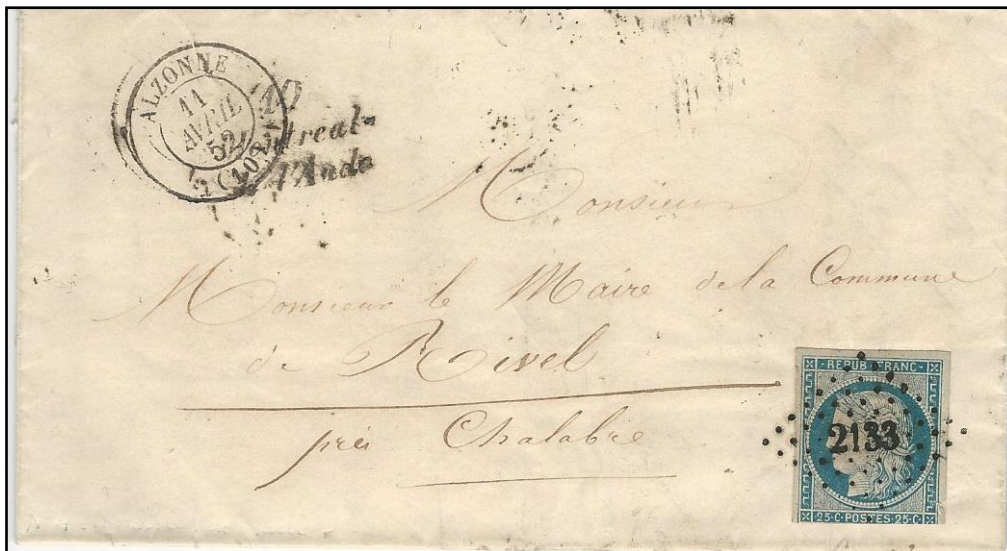 ALZONNE
11
AVRIL
52
(10)
10
Montreal-
de-l'Aude
Monsieur
Monsieur le Maire de la Commune
de Rivel
près Chalabre
REPUB FRANC
2133
25·C·POSTES·25·C